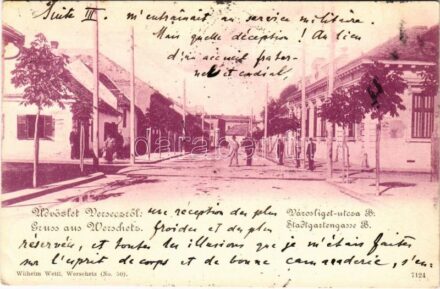 Suite III. m'entraînait au service militaire.
Mais quelle déception! Au lieu
d'un accueil frater-
nel et cordial
Üdvözlet Verseczről:
Gruss aus Werschetz.
une réception des plus
Városliget-utcza B.
Stadtgartengasse B.
froides et des plus
réservée, et toutes les illusions que je m'étais faites
sur l'esprit de corps et de bonne camaraderie, s'en-
Wilhelm Wettl, Werschetz (No. 50).
7124
darabanth